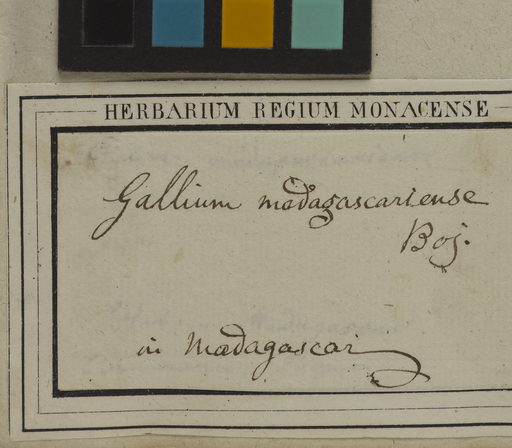 HERBARIUM REGIUM MONACENSE
Gallium madagascariense
Boj.
in Madagascar